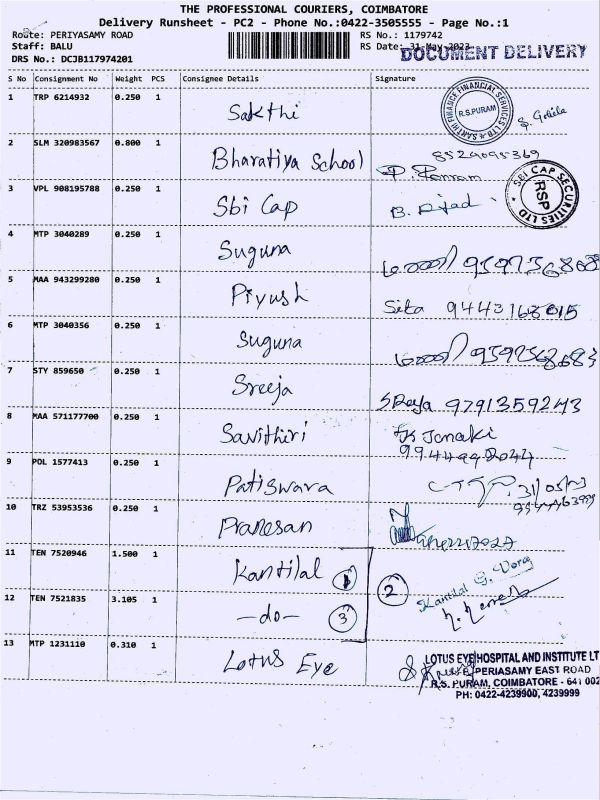 THE PROFESSIONAL COURIERS, COIMBATORE
Delivery Runsheet - PC2 - Phone No.:0422-3505555 - Page No.:1
Route: PERIYASAMY ROAD RS No.: 1179742
Staff: BALU RS Date: 31-May-2023
DOCUMENT DELIVERY
DRS No.: DCJB117974201
S No Consignment No Weight PCS Consignee Details Signature
1 TRP 6214932 0.250 1 Sakthi
SAKTHI FINANCE FINANCIAL SERVICES LTD R.S.PURAM
2 SLM 320983567 0.800 1 Bharatiya School 8529095369
3 VPL 908195788 0.250 1 Sbi Cap
SBI CAP SECURITIES LTD RSP
4 MTP 3040289 0.250 1 Suguna
5 MAA 943299280 0.250 1 Piyush
6 MTP 3040356 0.250 1 Suguna
7 STY 859650 0.250 1 Sreeja 9791359243
8 MAA 571177700 0.250 1 Savithiri Janaki
9 POL 1577413 0.250 1 Patiswara
10 TRZ 53953536 0.250 1 Pranesan
11 TEN 7520946 1.500 1 Kantilal 1 2 Kantilal G. Vora
12 TEN 7521835 3.105 1 -do- 3
13 MTP 1231110 0.310 1 Lotus Eye
LOTUS EYE HOSPITAL AND INSTITUTE LT
PERIASAMY EAST ROAD
R.S. PURAM, COIMBATORE - 641 002
PH: 0422-4239900, 4239999